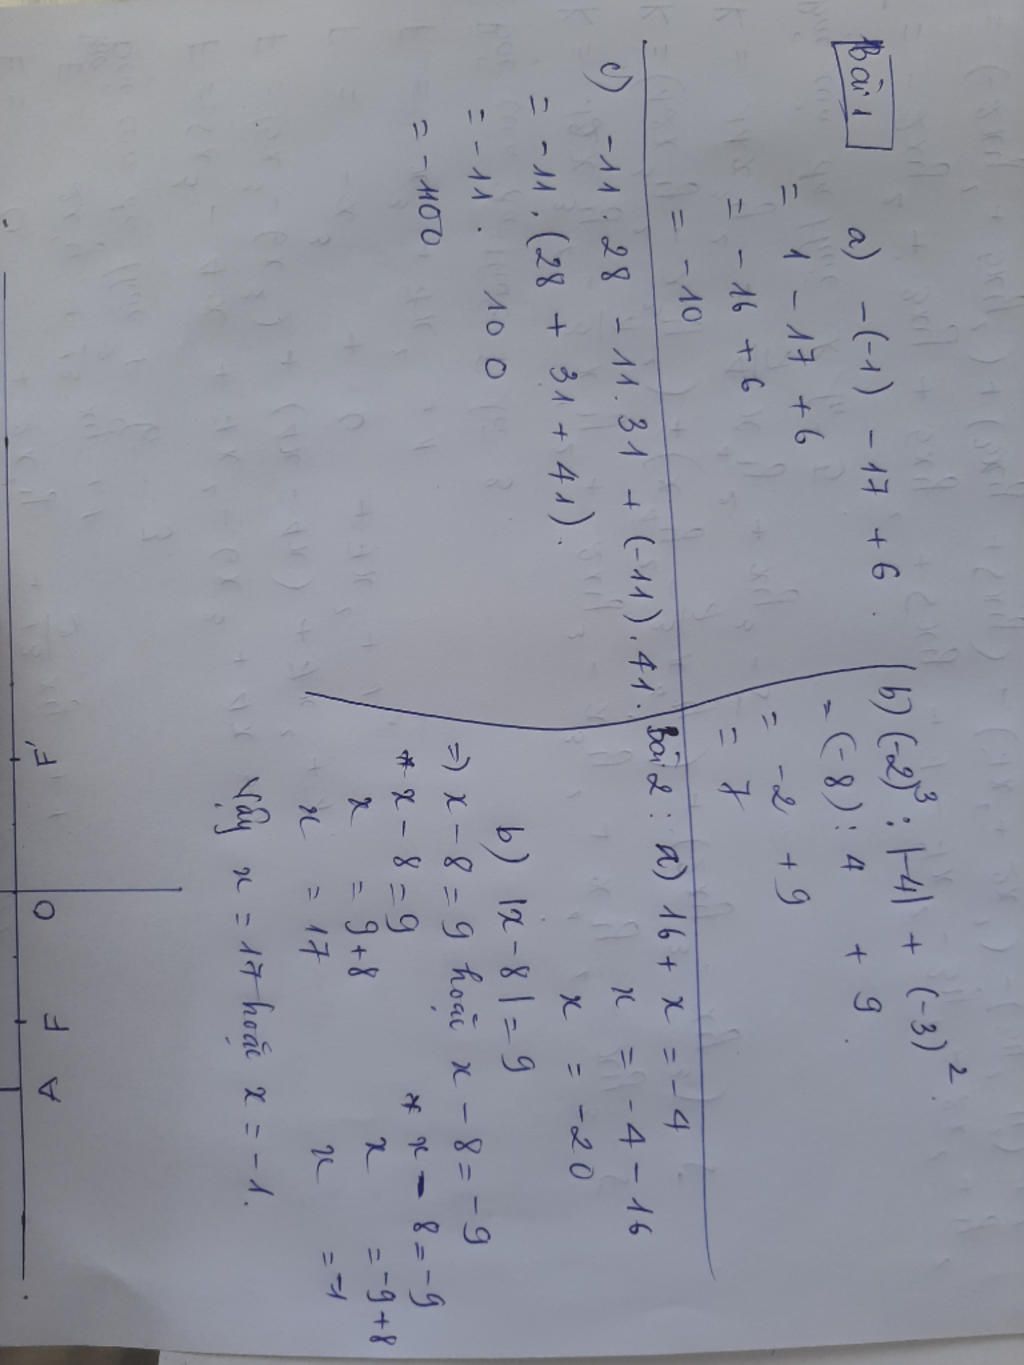 Bài 1
a) -(-1) - 17 + 6.
= 1 - 17 + 6
= -16 + 6
= -10
b) (-2)³ : |-4| + (-3)².
= (-8) : 4 + 9.
= -2 + 9
= 7
c) -11 . 28 - 11 . 31 + (-11) . 41.
= -11 . (28 + 31 + 41).
= -11 . 100
= -1100
Bài 2 : a) 16 + x = -4
x = -4 - 16
x = -20
b) |x - 8| = 9
=> x - 8 = 9 hoặc x - 8 = -9
* x - 8 = 9
x = 9 + 8
x = 17
* x - 8 = -9
x = -9 + 8
x = -1
Vậy x = 17 hoặc x = -1.
F' O F A